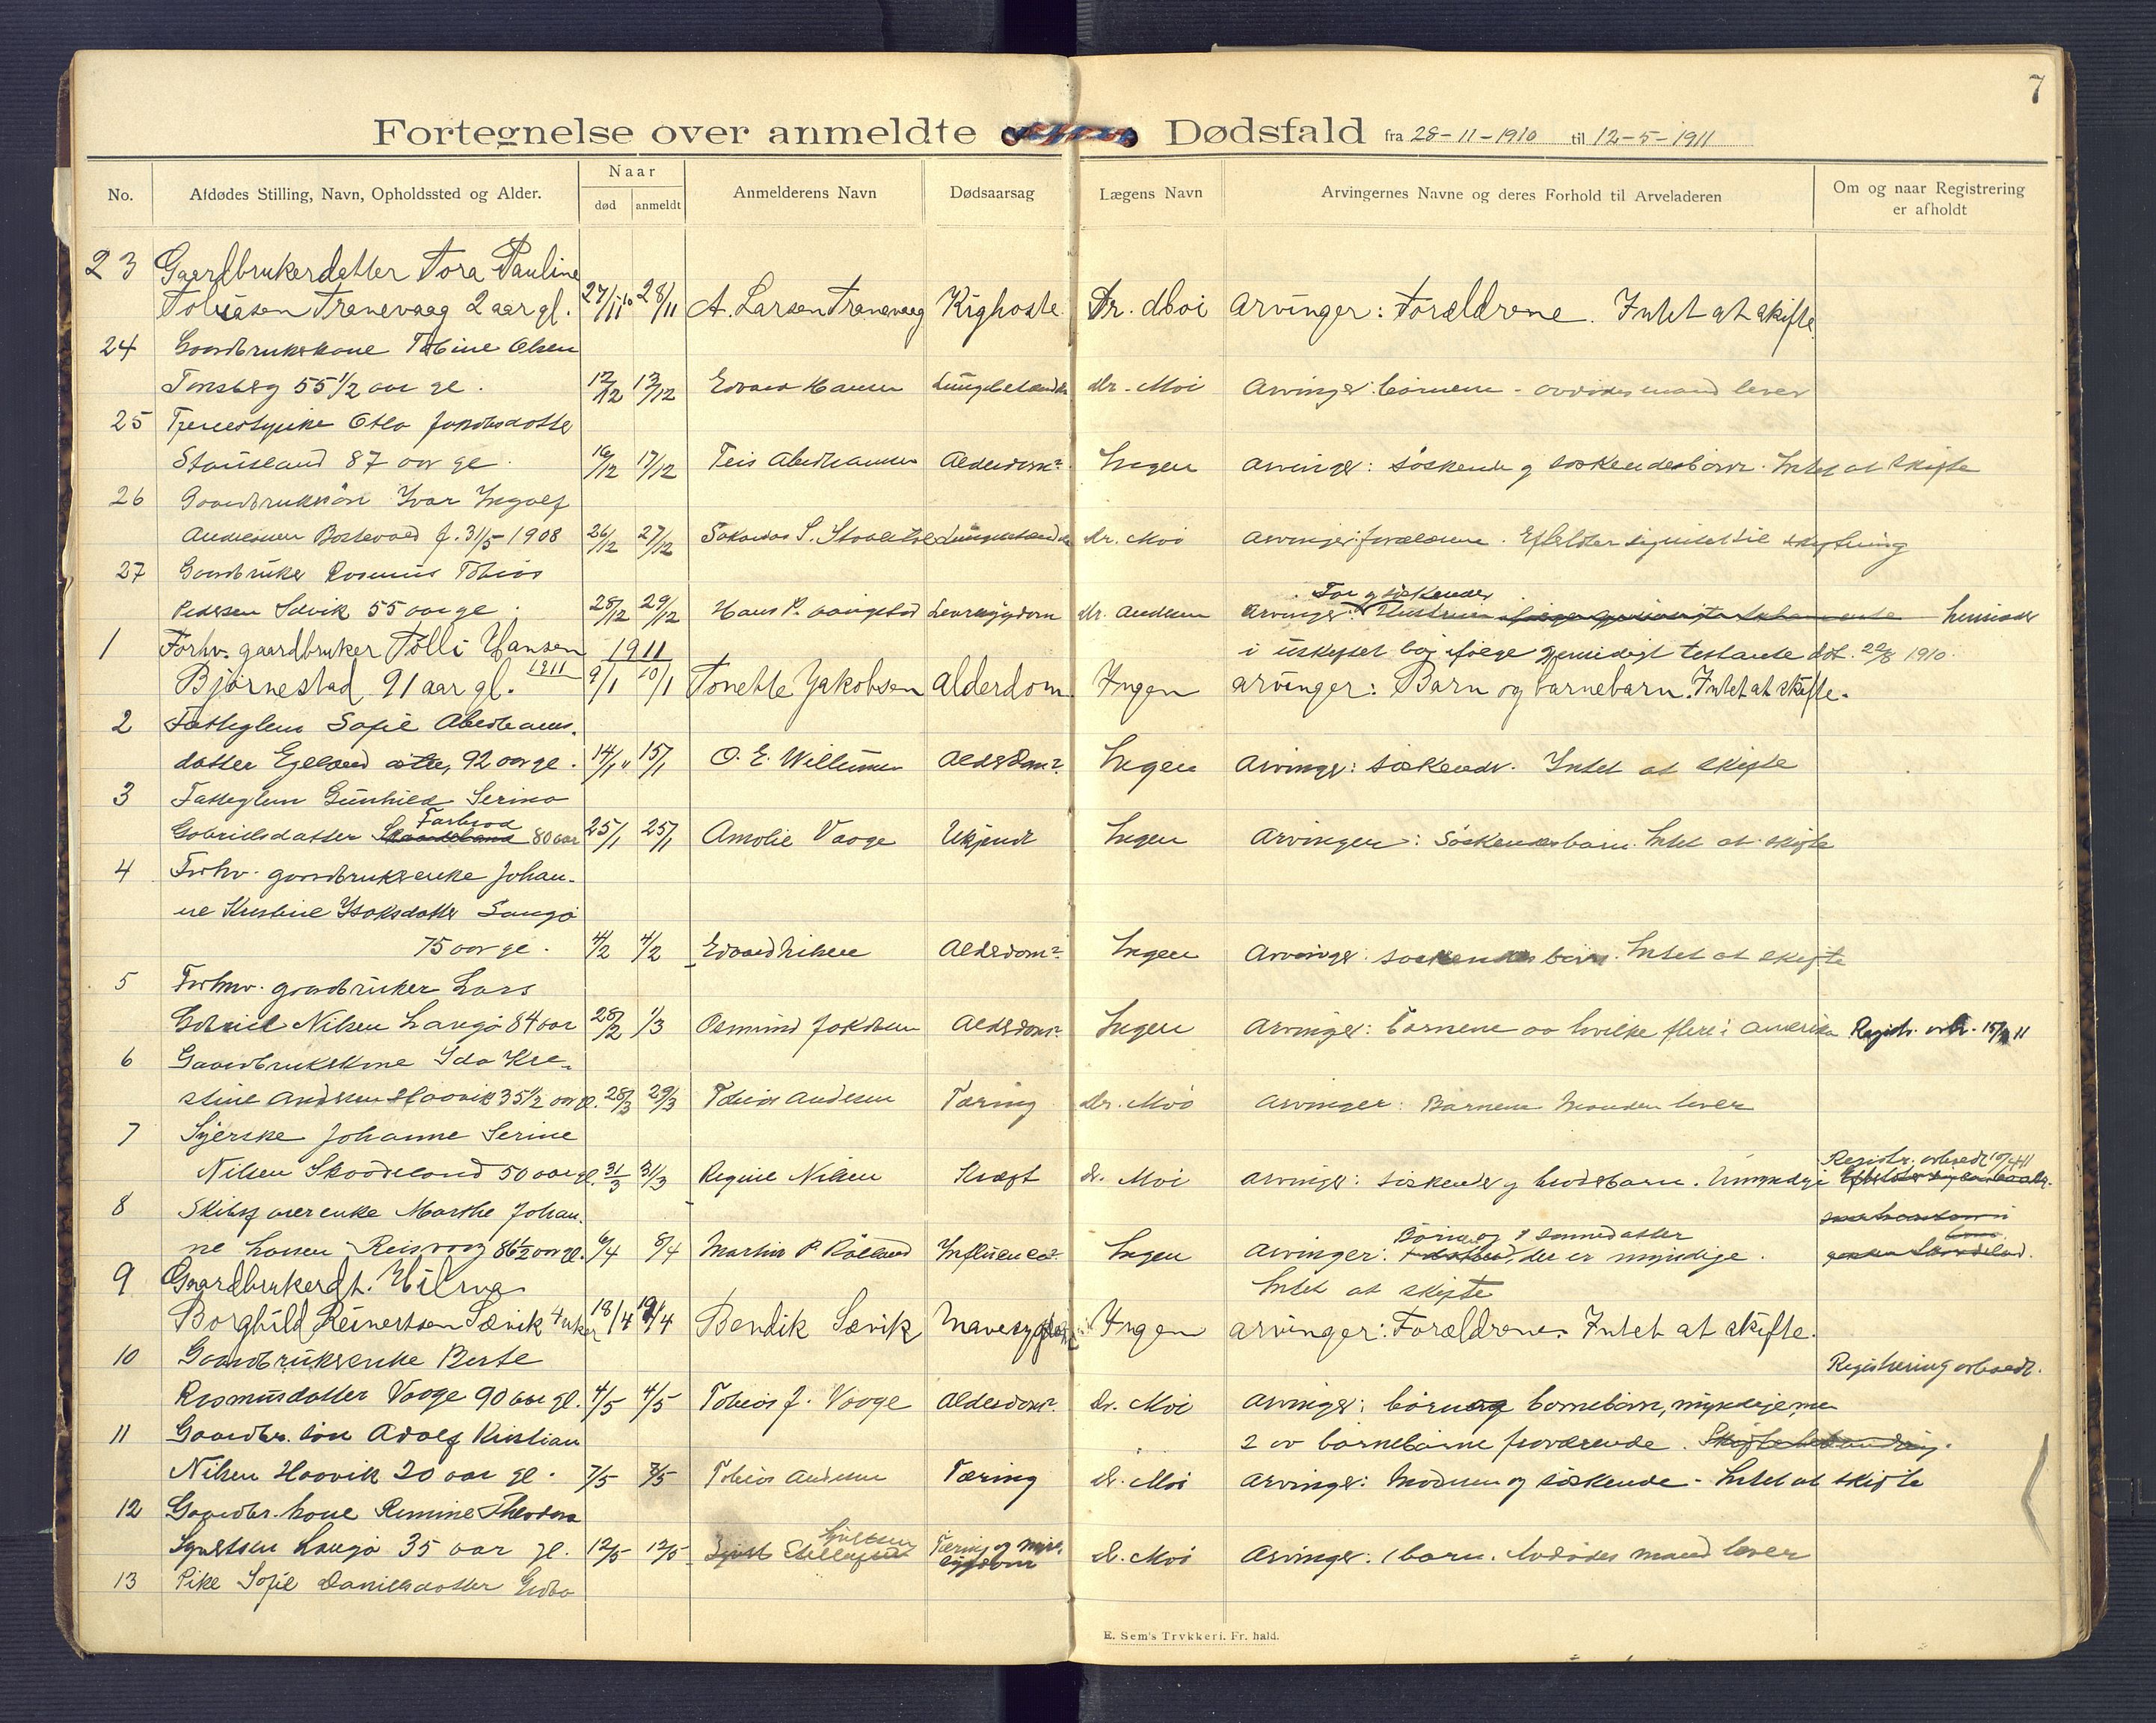 7
Fortegnelse over anmeldte Dødsfald fra 28-11-1910 til 12-5-1911
No. Afdødes Stilling, Navn, Opholdssted og Alder. Naar død anmeldt Anmelderens Navn Dødsaarsag Lægens Navn Arvingernes Navne og deres Forhold til Arveladeren Om og naar Registrering er afholdt
23 Gaardbrukerdatter Tora Pauline
Tobiasen Tranevaag 2 aar gl. 27/11 10 28/11 A. Larsen Tranevaag Kighoste Dr. Moi Arvinger: Forældrene. Intet at skifte
24 Gaardbrukerkone Tobine Olsen
Tønsberg 55 1/2 aar gl. 12/12 13/12 Edvard Hansen Lungebetændelse Dr. Moi Arvinger: børnene - avdødes mand lever
25 Tjenestepike Jakobsdatter
87 aar gl. 16/12 17/12 Teis Abrahamsen Alderdom Ingen Arvinger: søskende og søskendesbørn. Intet at skifte
26 Gaardbrukersøn Ivar Ingolf
Andreassen f. 31/5-1908 26/12 27/12 Dr. Moi Arvinger: forældrene. Efterlater sig intet til skiftning
27 Gaardbruker Rasmus Tobias
Pedersen Sævik 55 aar gl. 28/12 29/12 Hans P. Leversygdom Dr. Arvinger: Far og søskende
i uskiftet bo ifølge gjensidigt testamente dat. 22/8 1910.
1 Forhv. gaardbruker Tolli Hansen 1911
Bjørnestad 91 aar gl. 1911 9/1 10/1 Tonette Jakobsen Alderdom Ingen Arvinger: Barn og barnebarn. Intet at skifte.
2 Fattiglem Sofie Abrahams-
datter Egeland 92 aar gl. 14/1 15/1 O. E. Willumsen Alderdom Ingen Arvinger: søskende. Intet at skifte
3 Fattiglem Gunhild Serine
Gabrielsdatter Skaadeland Farbrod 80 aar 25/1 25/1 Amalie Vaage Ukjendt Ingen Arvinger: Søskendesbarn. Intet at skifte
4 Forhv. gaardbrukerenke Johan-
ne Kristine Isaksdatter Langø
75 aar gl. 4/2 4/2 Edvard Nilsen Alderdom Ingen Arvinger: søskendes børn. Intet at skifte
5 Forhv. gaardbruker Lars
Gabriel Nilsen Langø 84 aar 28/2 1/3 Osmund Jakobsen Alderdom Ingen Arvinger: Børnene av hvilke flere i Amerika Registr. avh.
6 Gaardbrukerkone Ida Kri-
stine Andersen Haavik 35 1/2 aar gl. 28/3 29/3 Tobias Andersen Tæring Dr. Moi Arvinger: Børnene Manden lever
7 Syerske Johanne Serine
Nilsen Skaadeland 50 aar gl. 31/3 31/3 Regine Nilsen Kræft Dr. Moi Arvinger: søskende og brodersbarn. Umyndige Registr. avholdt
8 Skibsførerenke Marthe Johan-
ne Larsen Reisvaag 86 1/2 aar gl. 6/4 8/4 Martin P. Røiland Influenca Ingen Arvinger: Børn og 1 sønnedatter, der er myndige.
Intet at skifte
9 Gaardbrukerdt. Hilma
Borghild Reinertsen Sævik 4 uker 18/4 19/4 Bendik Sævik Mavesygdom Ingen Arvinger: Forældrene. Intet at skifte.
10 Gaardbrukerenke Berte Registrering avholdt.
Rasmusdatter Vaage 90 aar gl. 4/5 4/5 Tobias J. Vaage Alderdom Dr. Moi Arvinger: børn og barnebørn, myndige, men
2 av barnebørnene fraværende. Skiftebehandling.
11 Gaardbr. søn Adolf Kristian
Nilsen Haavik 20 aar gl. 7/5 8/5 Tobias Andersen Tæring Dr. Moi Arvinger: Moderen og søskende - Intet at skifte
12 Gaardbr. kone Remine Theodora
Syvertsen Langø 35 aar gl. 12/5 12/5 Tæring og nyresygdom Dr. Moi Arvinger: 1 barn. Avdødes mand lever
13 Pike Sofie Danielsdatter
E. Sem's Trykkeri. Fr. hald.